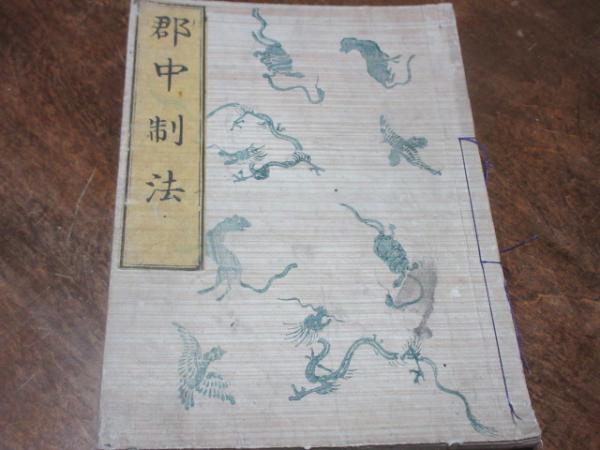 郡中制法